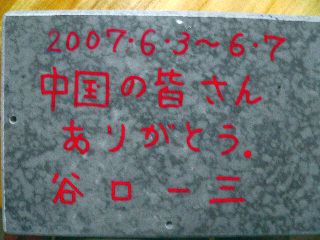 2007・6・3〜6・7
中国の皆さん
ありがとう。
谷口一三